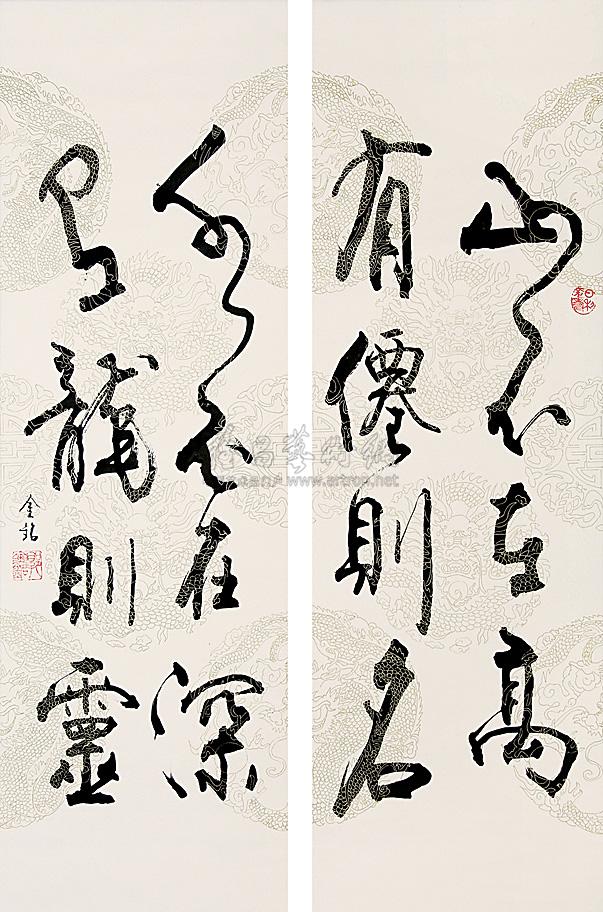 山不在高
有僊則名
水不在深
有龍則靈
金銘
www.artron.net